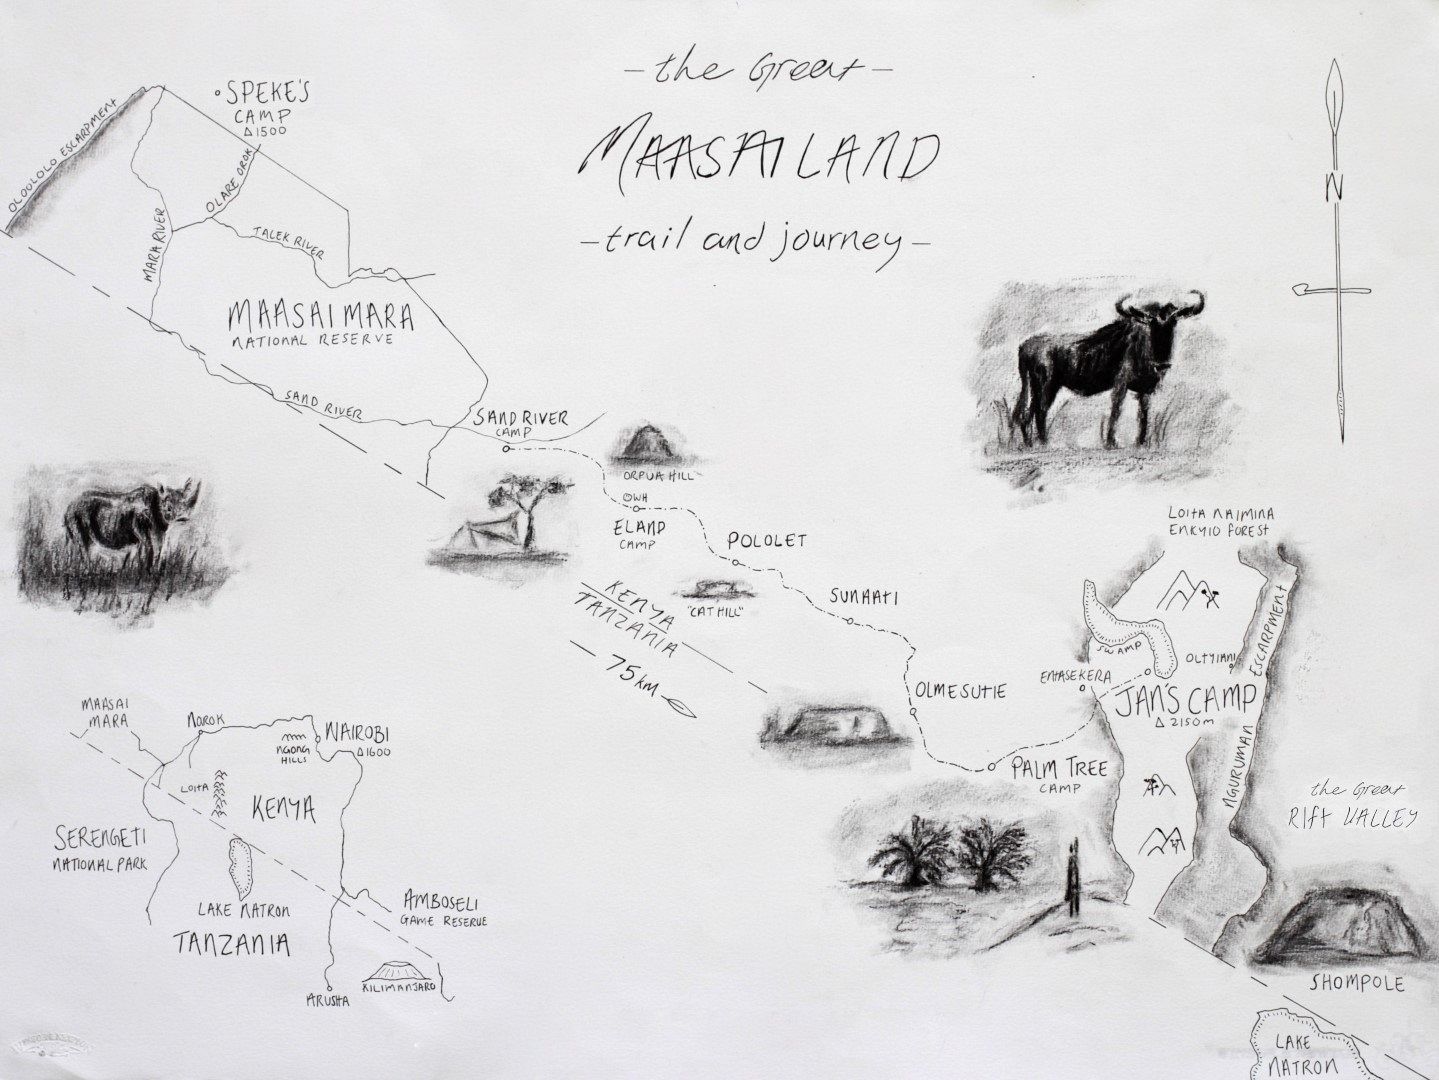 -the Great-
MAASAILAND
-trail and journey-
SPEKE'S
CAMP
Δ1500
OLOULOLO ESCARPMENT
OLARE OROK
MARA RIVER
TALEK RIVER
MAASAI MARA
NATIONAL RESERVE
SAND RIVER
SAND RIVER
CAMP
N
ORPUA HILL
OWH
ELAND
CAMP
POLOLET
"CAT HILL"
SUNAATI
KENYA
TANZANIA
75 KM
OLMESUTIE
PALM TREE
CAMP
LOITA NAIMINA
ENKYIO FOREST
SWAMP
OLTYIANI
ENTASEKERA
JAN'S CAMP
Δ 2150m
NGURUMAN ESCARPMENT
the Great
RIFT VALLEY
SHOMPOLE
LAKE
NATRON
MAASAI
MARA
NOROK
NAIROBI
Δ1600
NGONG
HILLS
LOITA
KENYA
SERENGETI
NATIONAL PARK
LAKE NATRON
TANZANIA
AMBOSELI
GAME RESERVE
KILIMANJARO
ARUSHA